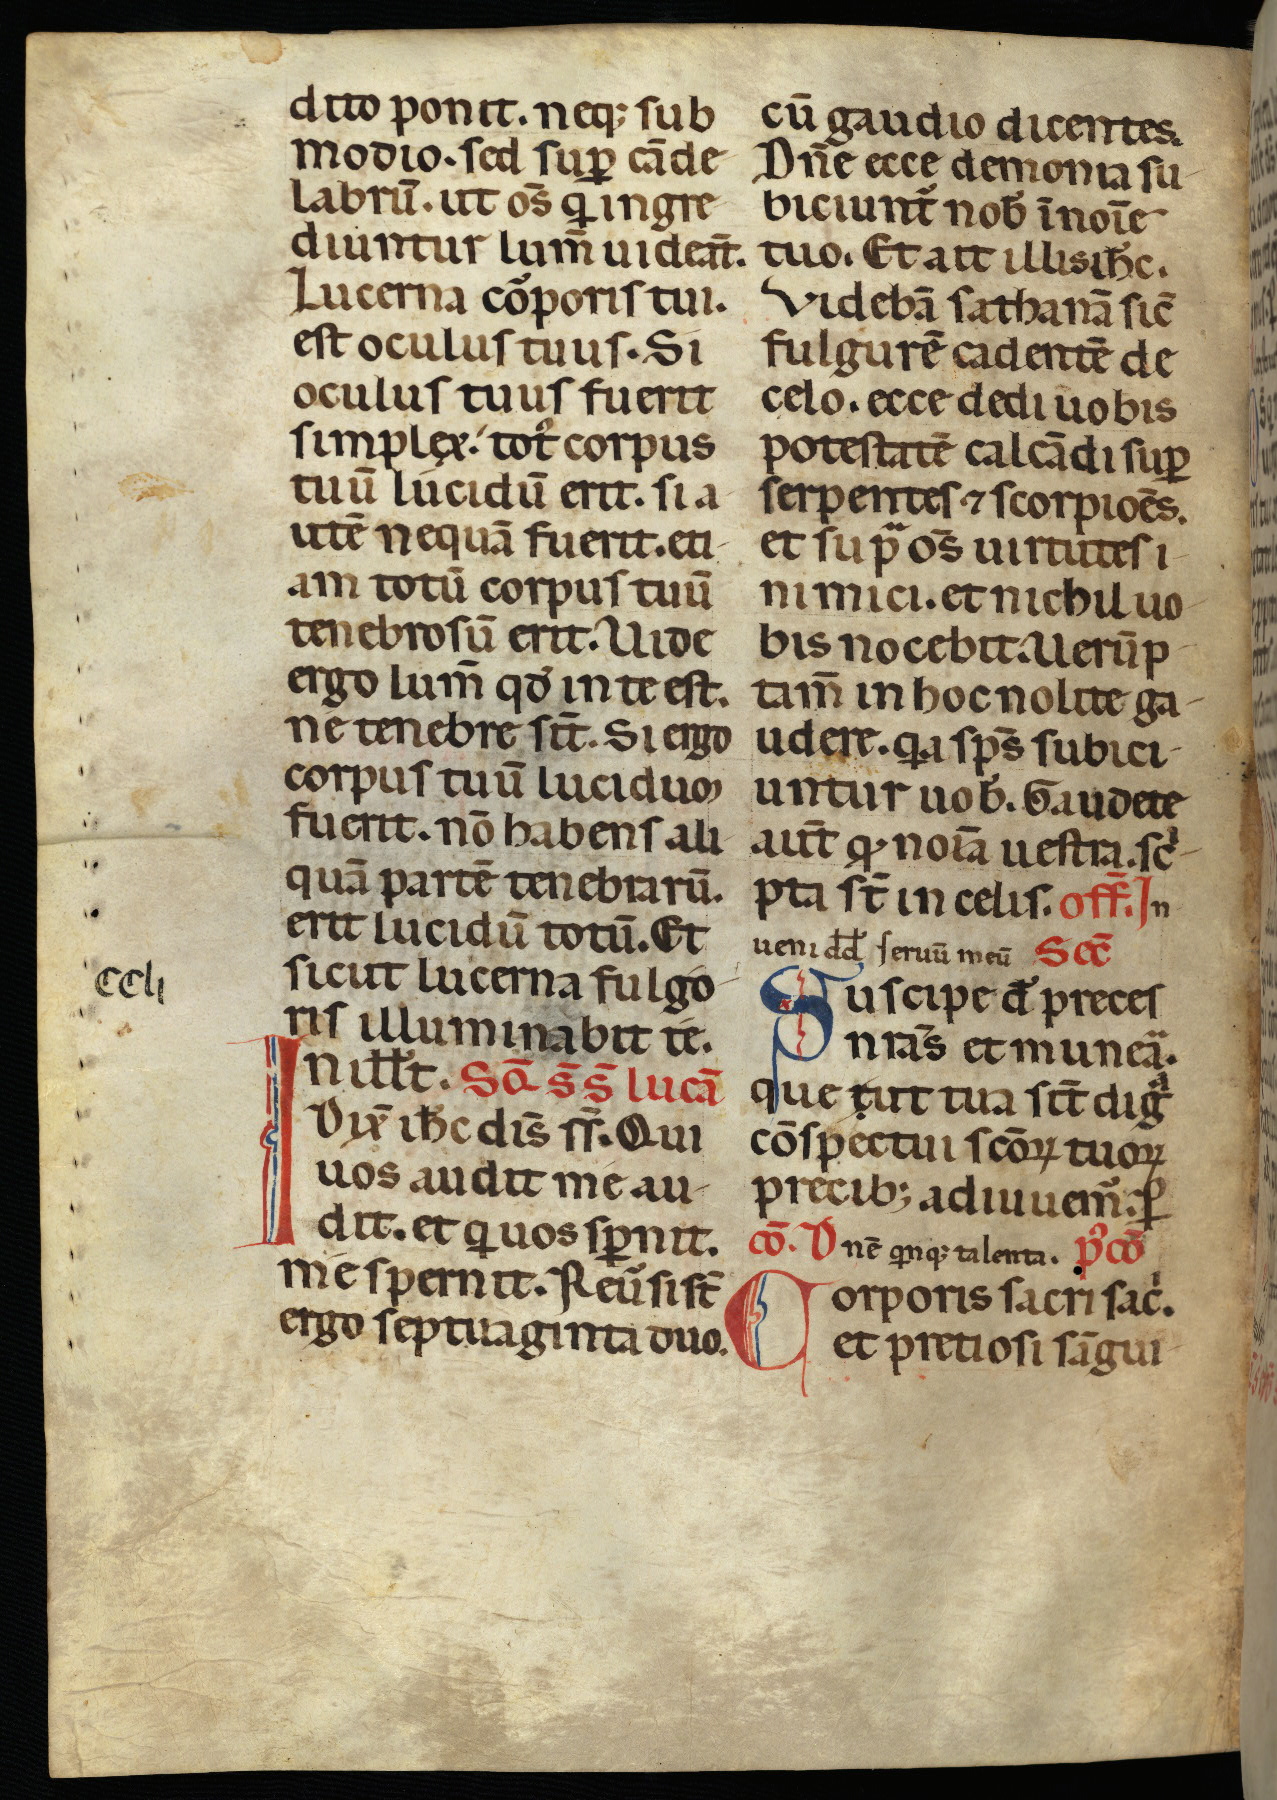 dito ponit. neq; sub
modio. sed sup cāde
labrū. ut oṁs qi ingre
diuntur lum̄ uideāt.
Lucerna corporis tui.
est oculus tuus. Si
oculus tuus fuerit
simplex. tot' corpus
tuū lucidū erit. si a
utē nequā fuerit. eti
am totū corpus tuū
tenebrosū erit. Uide
ergo lum̄ qd' in te est.
ne tenebre sīt. Si ergo
corpus tuū luciduʒ
fuerit. nō habens ali
quā partē tenebrarū.
erit lucidū totū. Et
sicut lucerna fulgo
ris illuminabit te.
In ill̄ t. Sc̄d s̄ s̄ lucā
Dix̄ ih̄c dis̄ ss̄. Qui
uos audit me au
dit. et qi uos spnit.
me spernit. Reū̓si st̄
ergo septuaginta duo.
ccli
cū gaudio dicentes.
Dn̄e ecce demonia su
biciunt̄ nob̄ ī noīe
tuo. Et ait illis ih̄c.
Videbā sathanā sic̄
fulgurē cadentē de
celo. ecce dedi uobis
potestatē calcādi sup
serpentes ⁊ scorpioēs.
et supª oṁs uirtutes i
nimici. et nichil uo
bis nocebit. Uerūp
tam̄ in hoc nolite ga
udere. qia sp̄s subici
untur uob̄. Gaudete
aut̄ qd noīa uestra. sc
pta st̄ in celis. off̄. In
ueni dd̄ seruū meū Sec̄
Suscipe d̄s preces
nrās̄ et munerª.
que ut tua sīt digª
cōspectui scōꝝ tuoꝝ
precib; adiuuem̄. p
cō. Dnē qinq; talenta. p' cō
Corporis sacri sac̓.
et pretiosi sāgui